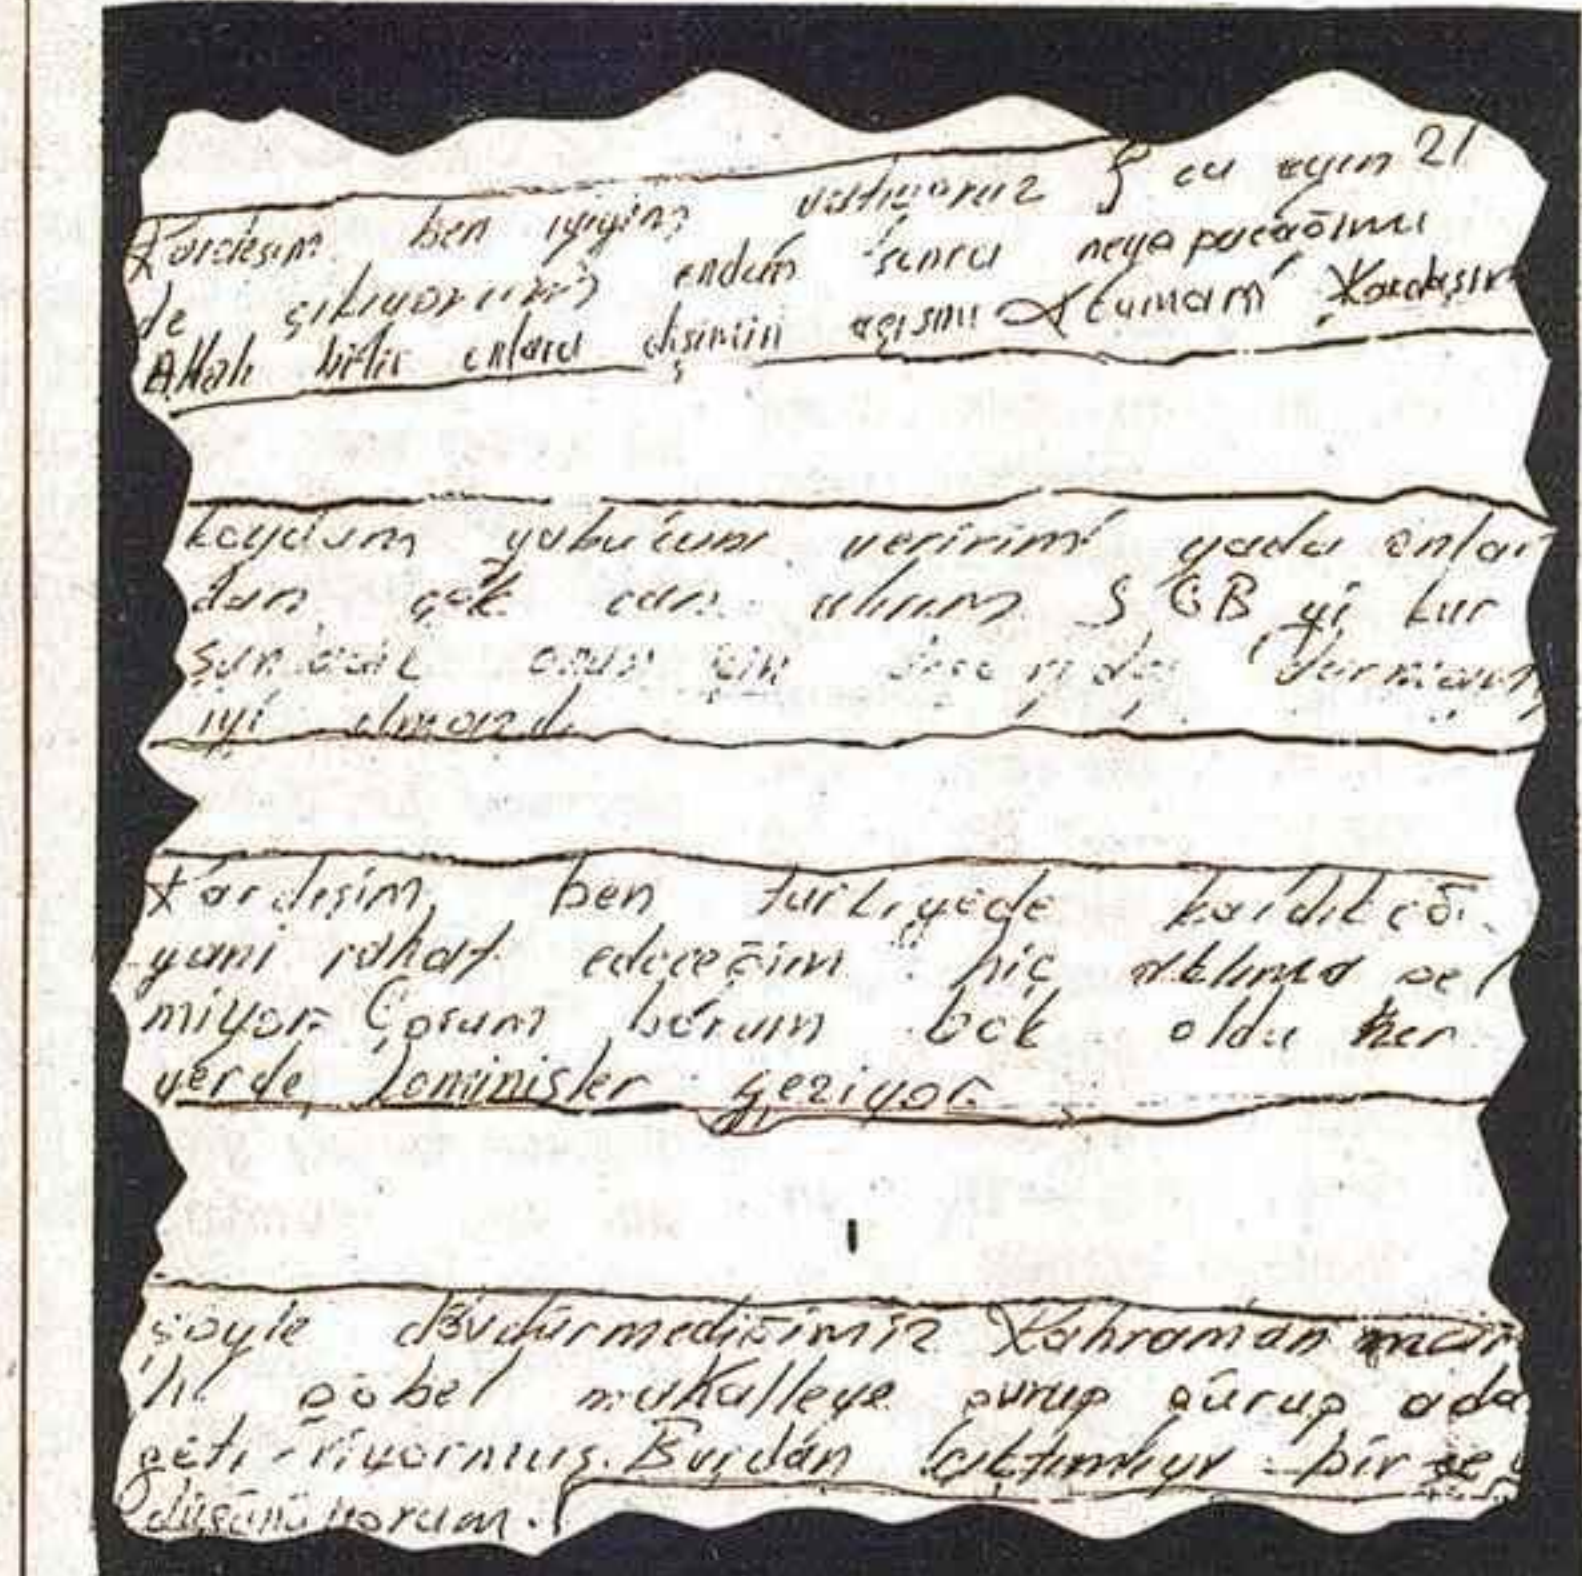 Kardeşim ben iyiyim yatıyoruz Şu ayın 21
de çıkıyorum ondan sonra neyapacağımı
Allah bilir onlara dişimin Kardeşim
koydum ya bu canı veririm yada onlar
dan çok can alırım SGB yi kur
şun onun için durmam
iyi olmaz
Kardeşim ben türkiyede kaldıkça
yani rahat edeceğim hiç aklıma gel
miyor Çorum borum bok oldu her
yerde kominisler geziyor
şöyle dövdürmediğimiz Kahraman mar
lı göbel mahalleye gurup gurup ada
geti riyormuş. Burdan çıktımıyı bir şey
düşünüyorum.